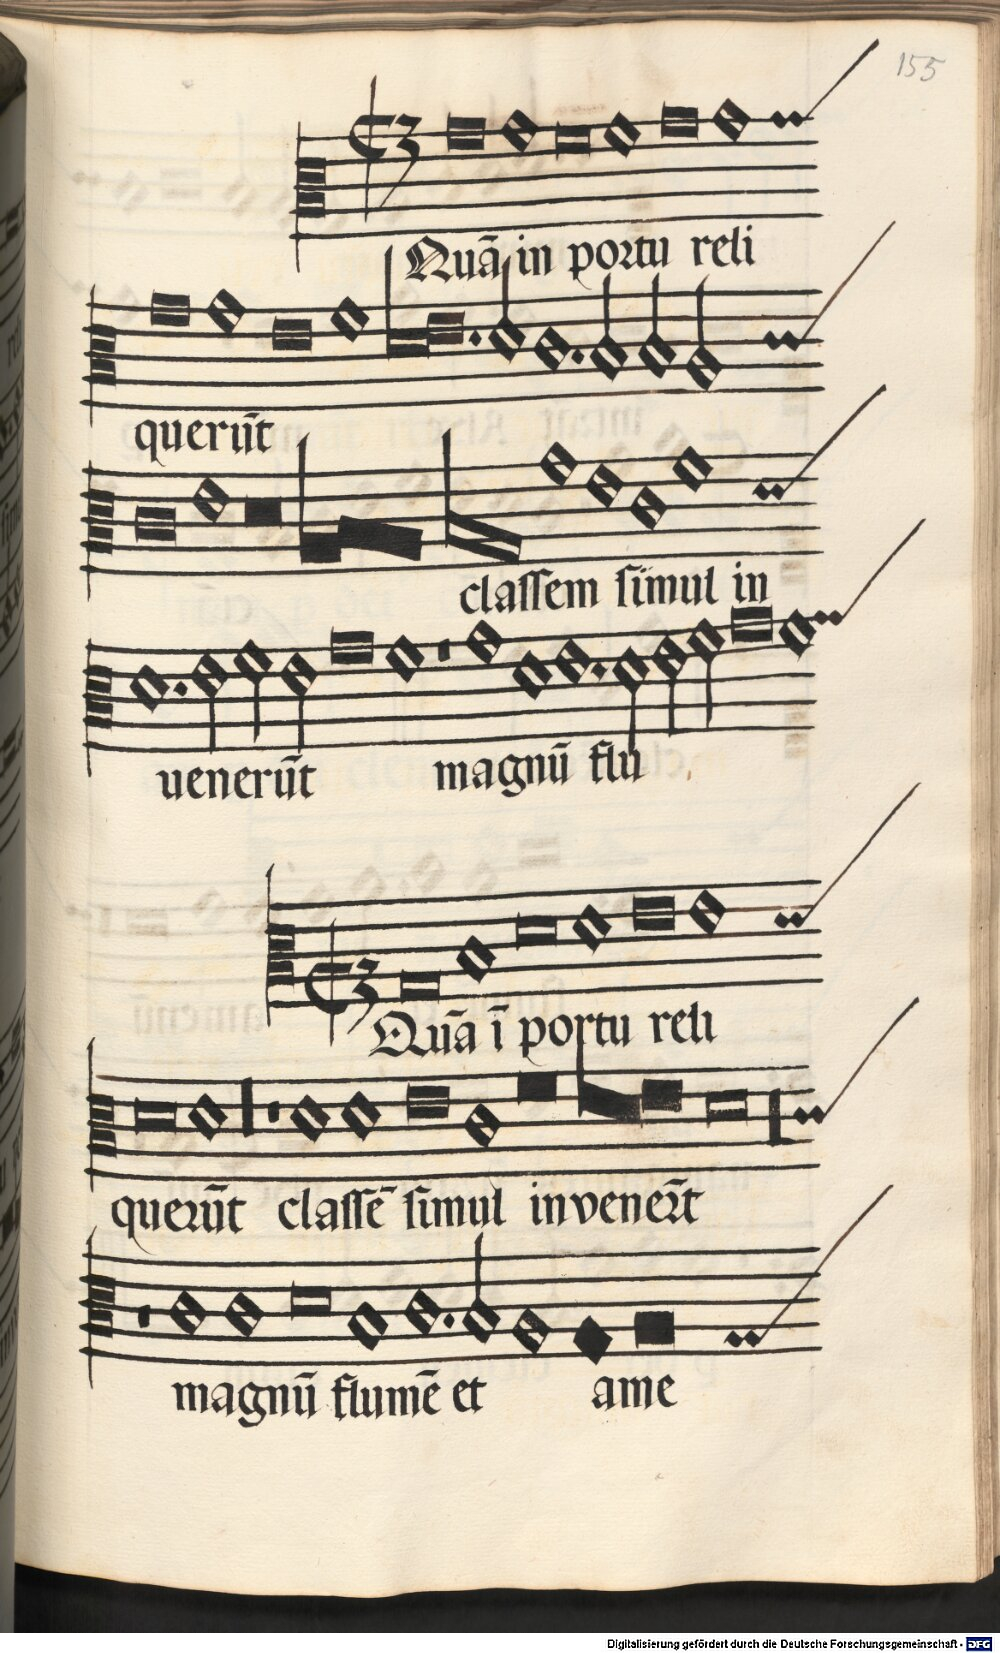 155
Quā in portu reli
querūt
classem simul in
uenerūt magnū flu
Quā ī portu reli
querūt classē simul invener̄t
magnū flumē et ame
Digitalisierung gefördert durch die Deutsche Forschungsgemeinschaft - DFG